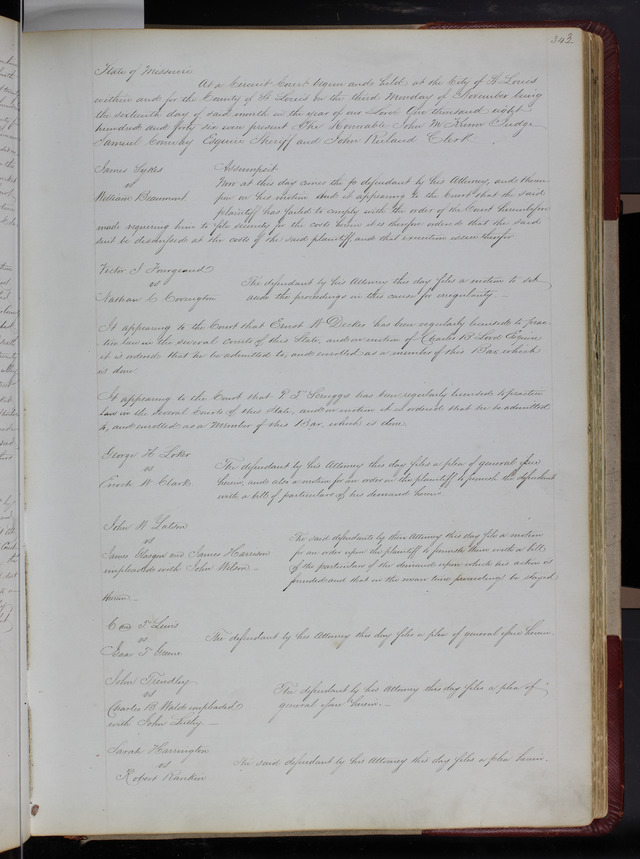 343
State of Missouri
At a Circuit Court begun and held at the City of St Louis
within and for the County of St Louis on the third Monday of November being
the sixteenth day of said month in the year of our Lord One thousand eight
hundred and forty six were present The Honorable John M Krum Judge
Samuel Conway Esquire Sheriff and John Ruland Clerk
James Sykes Assumpsit
vs Now at this day comes the sd defendant by his Attorney, and there
William Beaumont upon his motion and it appearing to the Court that the said
plaintiff has failed to comply with the order of the Court heretofore
made requiring him to file security for the costs herein it is therefore ordered that the said
suit be dismissed at the costs of the said plaintiff, and that execution issue therefor
Victor J Fourgeaud
vs The defendant by his Attorney this day files a motion to set
Nathan C Covington aside the proceedings in this cause for irregularity.
It appearing to the Court that Ernst W Decker has been regularly licensed to prac-
tice law in the several Courts of this State, and on motion of Charles B Lord Esquire
it is ordered that he be admitted to, and enrolled as a member of this Bar, which
is done.
It appearing to the Court that T Scruggs has been regularly licensed to practice
Law in the several Courts of this State, and on motion it is ordered that he be admitted
to, and enrolled as a Member of this Bar, which is done.
George H Loker
vs The defendant by his Attorney this day files a plea of general issue
Enoch W Clark herein, and also a motion for an order on the plaintiff to furnish the defendant
with a bill of particulars of his demand herein
John W
vs The said defendants by their Attorney this day file a motion
James Glasgow and James Harrison for an order upon the plaintiff to furnish them with a bill
impleaded with John Wilson of the particulars of the demand upon which his action is
founded and that in the mean time proceedings be stayed
Herein
T Lewis
vs The defendant by his Attorney this day files a plea of general issue herein
Isaac T Greene
John Trendley
vs The defendant by his Attorney this day files a plea of
Charles B impleaded general issue herein.
with John
Sarah Harrington
vs The said defendant by his Attorney this day files a plea herein.
Robert Rankin